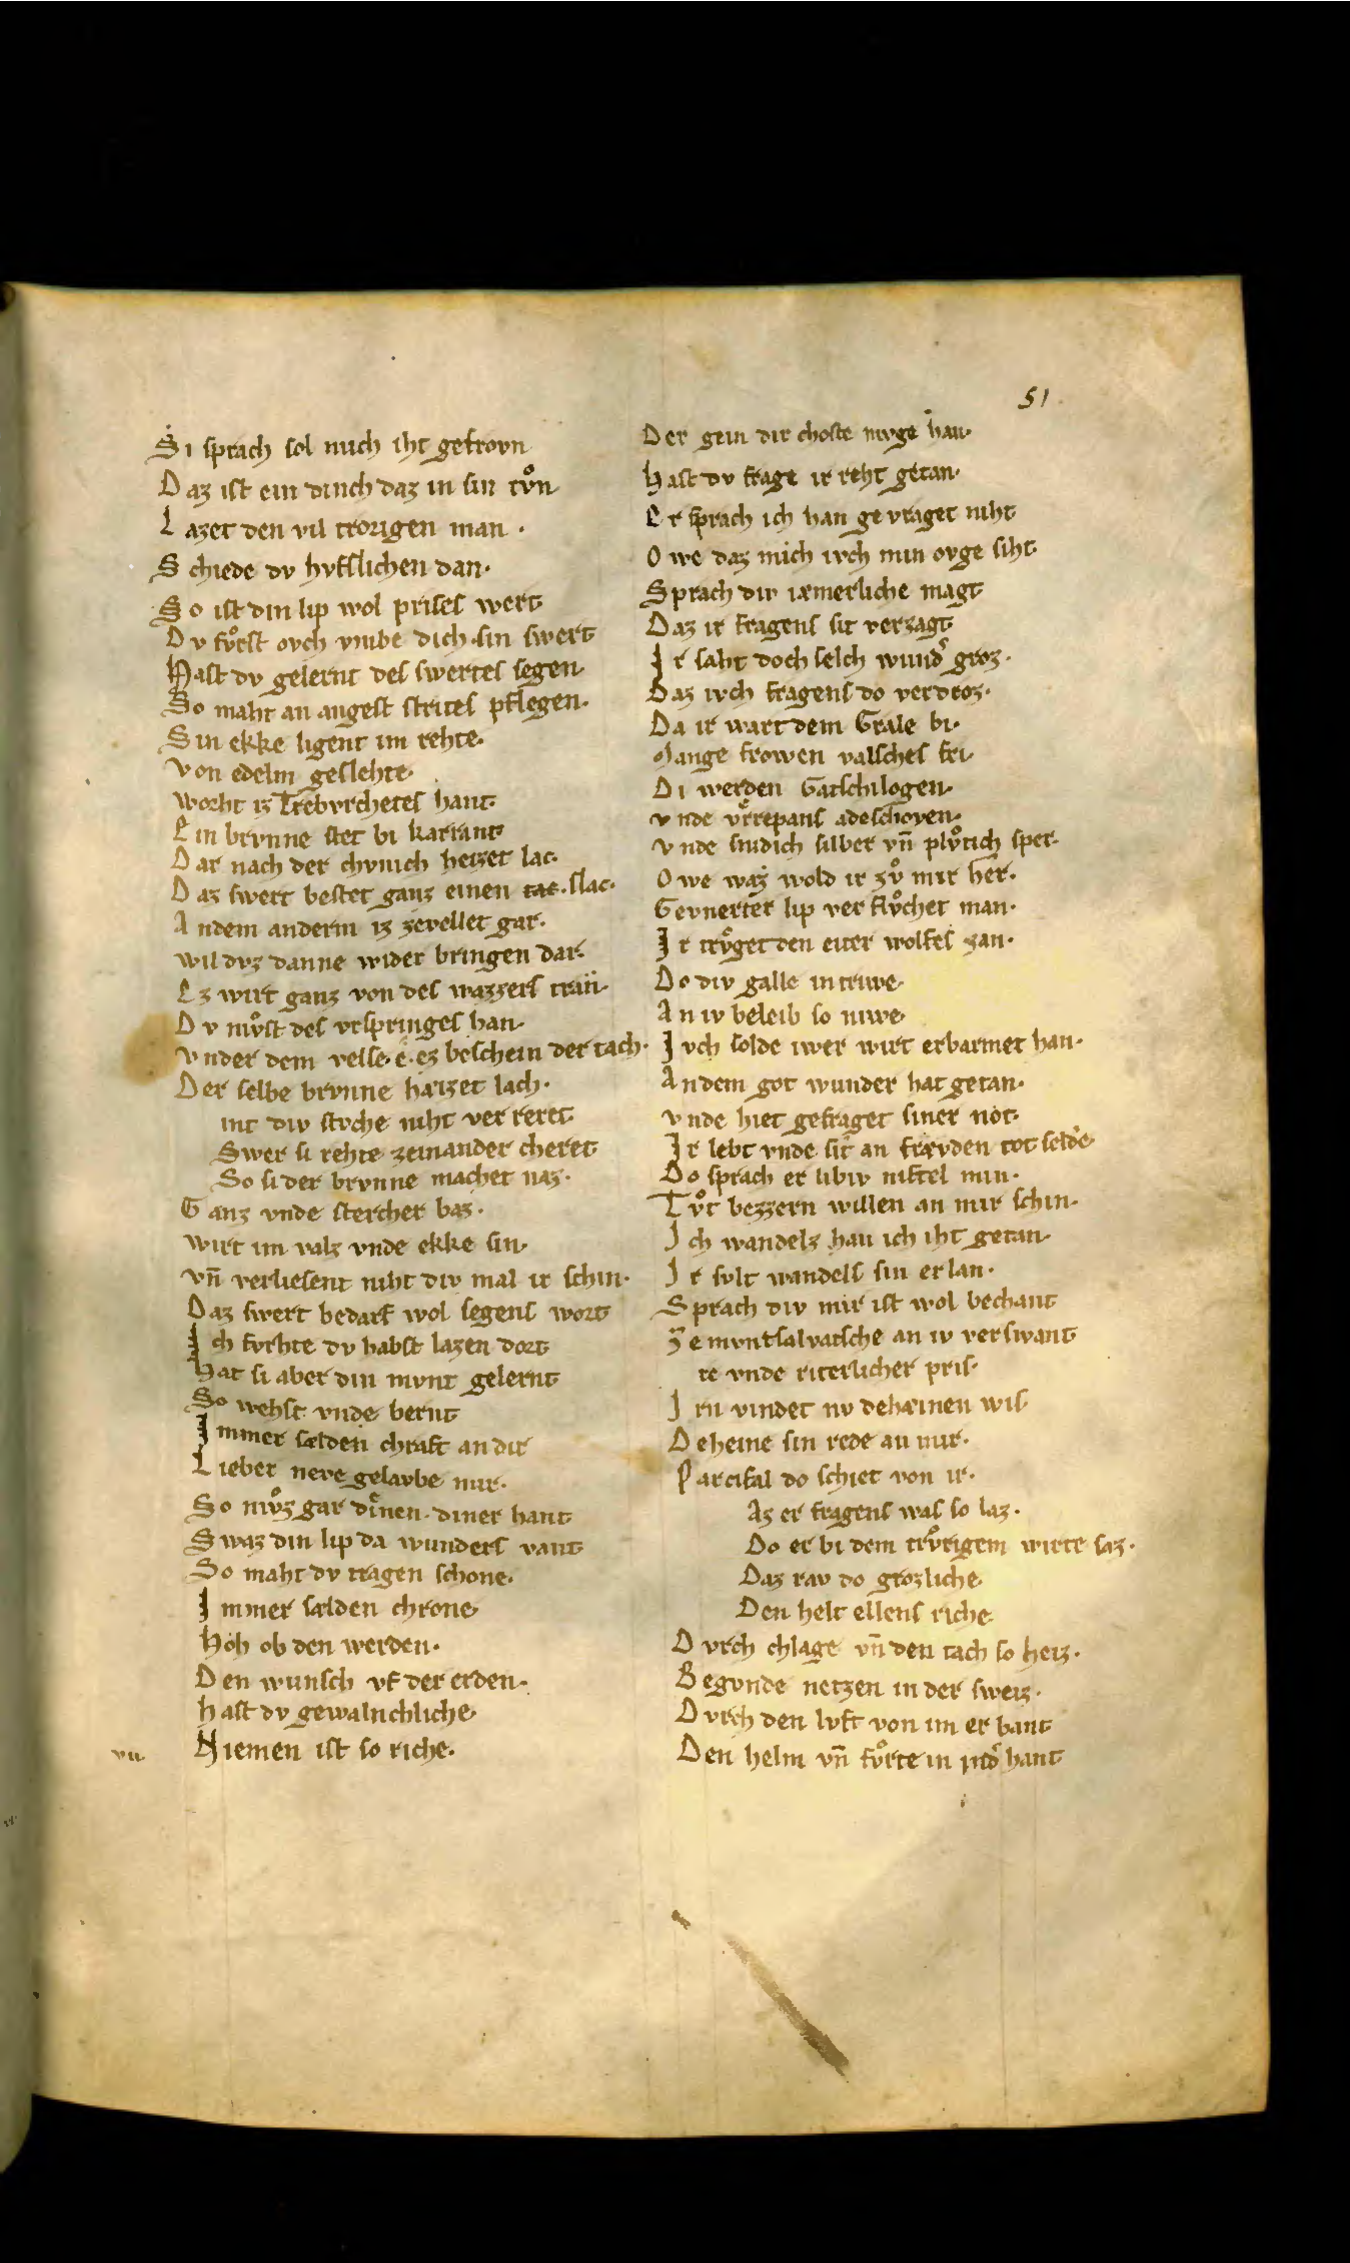 51
Si sprach sol mich iht gefrovn
Daz ist ein dinch daz in sin tvͦn
Lazet den vil trorigen man.
Schiede dv hvfslichen dan.
So ist din lip wol prises wert
Dv fvͦrst ovch vmbe dich sin swert
Hast dv gelernt des swertes segen
So maht an angest strites pflegen.
Sin ekke ligent im rehte.
Von edelm geslehte
worht iz Trebvrchetes hant
Ein brvnne stet bi karnant
Dar nach der chvnich heizet lac.
Daz swert bestet ganz einen slac.
Andem anderm iz zevellet gar.
wil dvz danne wider bringen dar.
Ez wirt ganz von des wazzers tran
Dv mvͦst des vrspringes han
Vnder dem velse. e. ez beschein der tach.
Der selbe brvnne hæizet lach.
int div stvche niht ver reret
Swer si rehte zeinander cheret
So si der brvnne machet naz.
Ganz vnde stercher baz.
wirt im valz vnde ekke sin
vn̄ verliesent niht div mal ir schin.
Daz swert bedarf wol segens wort
Ich fvrhte dv habst lazen dort
Hat si aber din mvnt gelernt
So wehst vnde bernt
Immer sælden chraft an dir
Lieber neve gelavbe mir.
So mvͦz gar dienen diner hant
Swaz din lip da wunders vant
So maht dv tragen schone.
Immer sælden chrone
Hoh ob den werden.
Den wunsch vf der erden.
hast dv gewalnchliche
Niemen ist so riche.
vii.
Der gein dir choste mvge han
Hast dv frage ir reht getan.
Er sprach ich han gevraget niht
Owe daz mich ivch min ovge siht
Sprach div iæmerliche magt
Daz ir fragens sit verzagt
Ir saht doch selch wund͛ groz.
Daz ivch fragens do verdroz.
Da ir wart dem Grale bi.
Mange frowen valsches fri
Di werden Garschilogen.
vnde vrrepans adeschoyen.
vnde snidich silber vn̄ plvͦtich sper.
Owe waz wold ir zvͦ mir her.
Gevnerter lip ver flvͦchet man.
Ir trvͦget den eiter wolfes zan.
Do div galle in triwe
An iv beleib so niwe
Ivch solde iwer wirt erbarmet han.
Andem got wunder hat getan.
vnde hiet gefraget siner not.
Ir lebt vnde sit an frævden tot selde
Do sprach er libiv niftel min.
Tvͦt bezzern willen an mir schin.
Ich wandelz han ich iht getan
Ir svlt wandels sin erlan.
Sprach div mir ist wol bechant
Ze mvntsalvatsche an iv verswant
re vnde riterlicher pris.
Irn vindet nv dehæinen wis
Deheine sin rede an mir.
Parcifal do schiet von ir.
Az er fragens was so laz.
Do er bi dem trvͦrigem wirte saz.
Daz rav do grozliche
Den helt ellens riche
Dvrch chlage vn̄ den tach so heiz.
Begvnde netzen in der sweiz.
Dvrch den lvft von im er bant
Den helm vn̄ fvͦrte in ind͛ hant